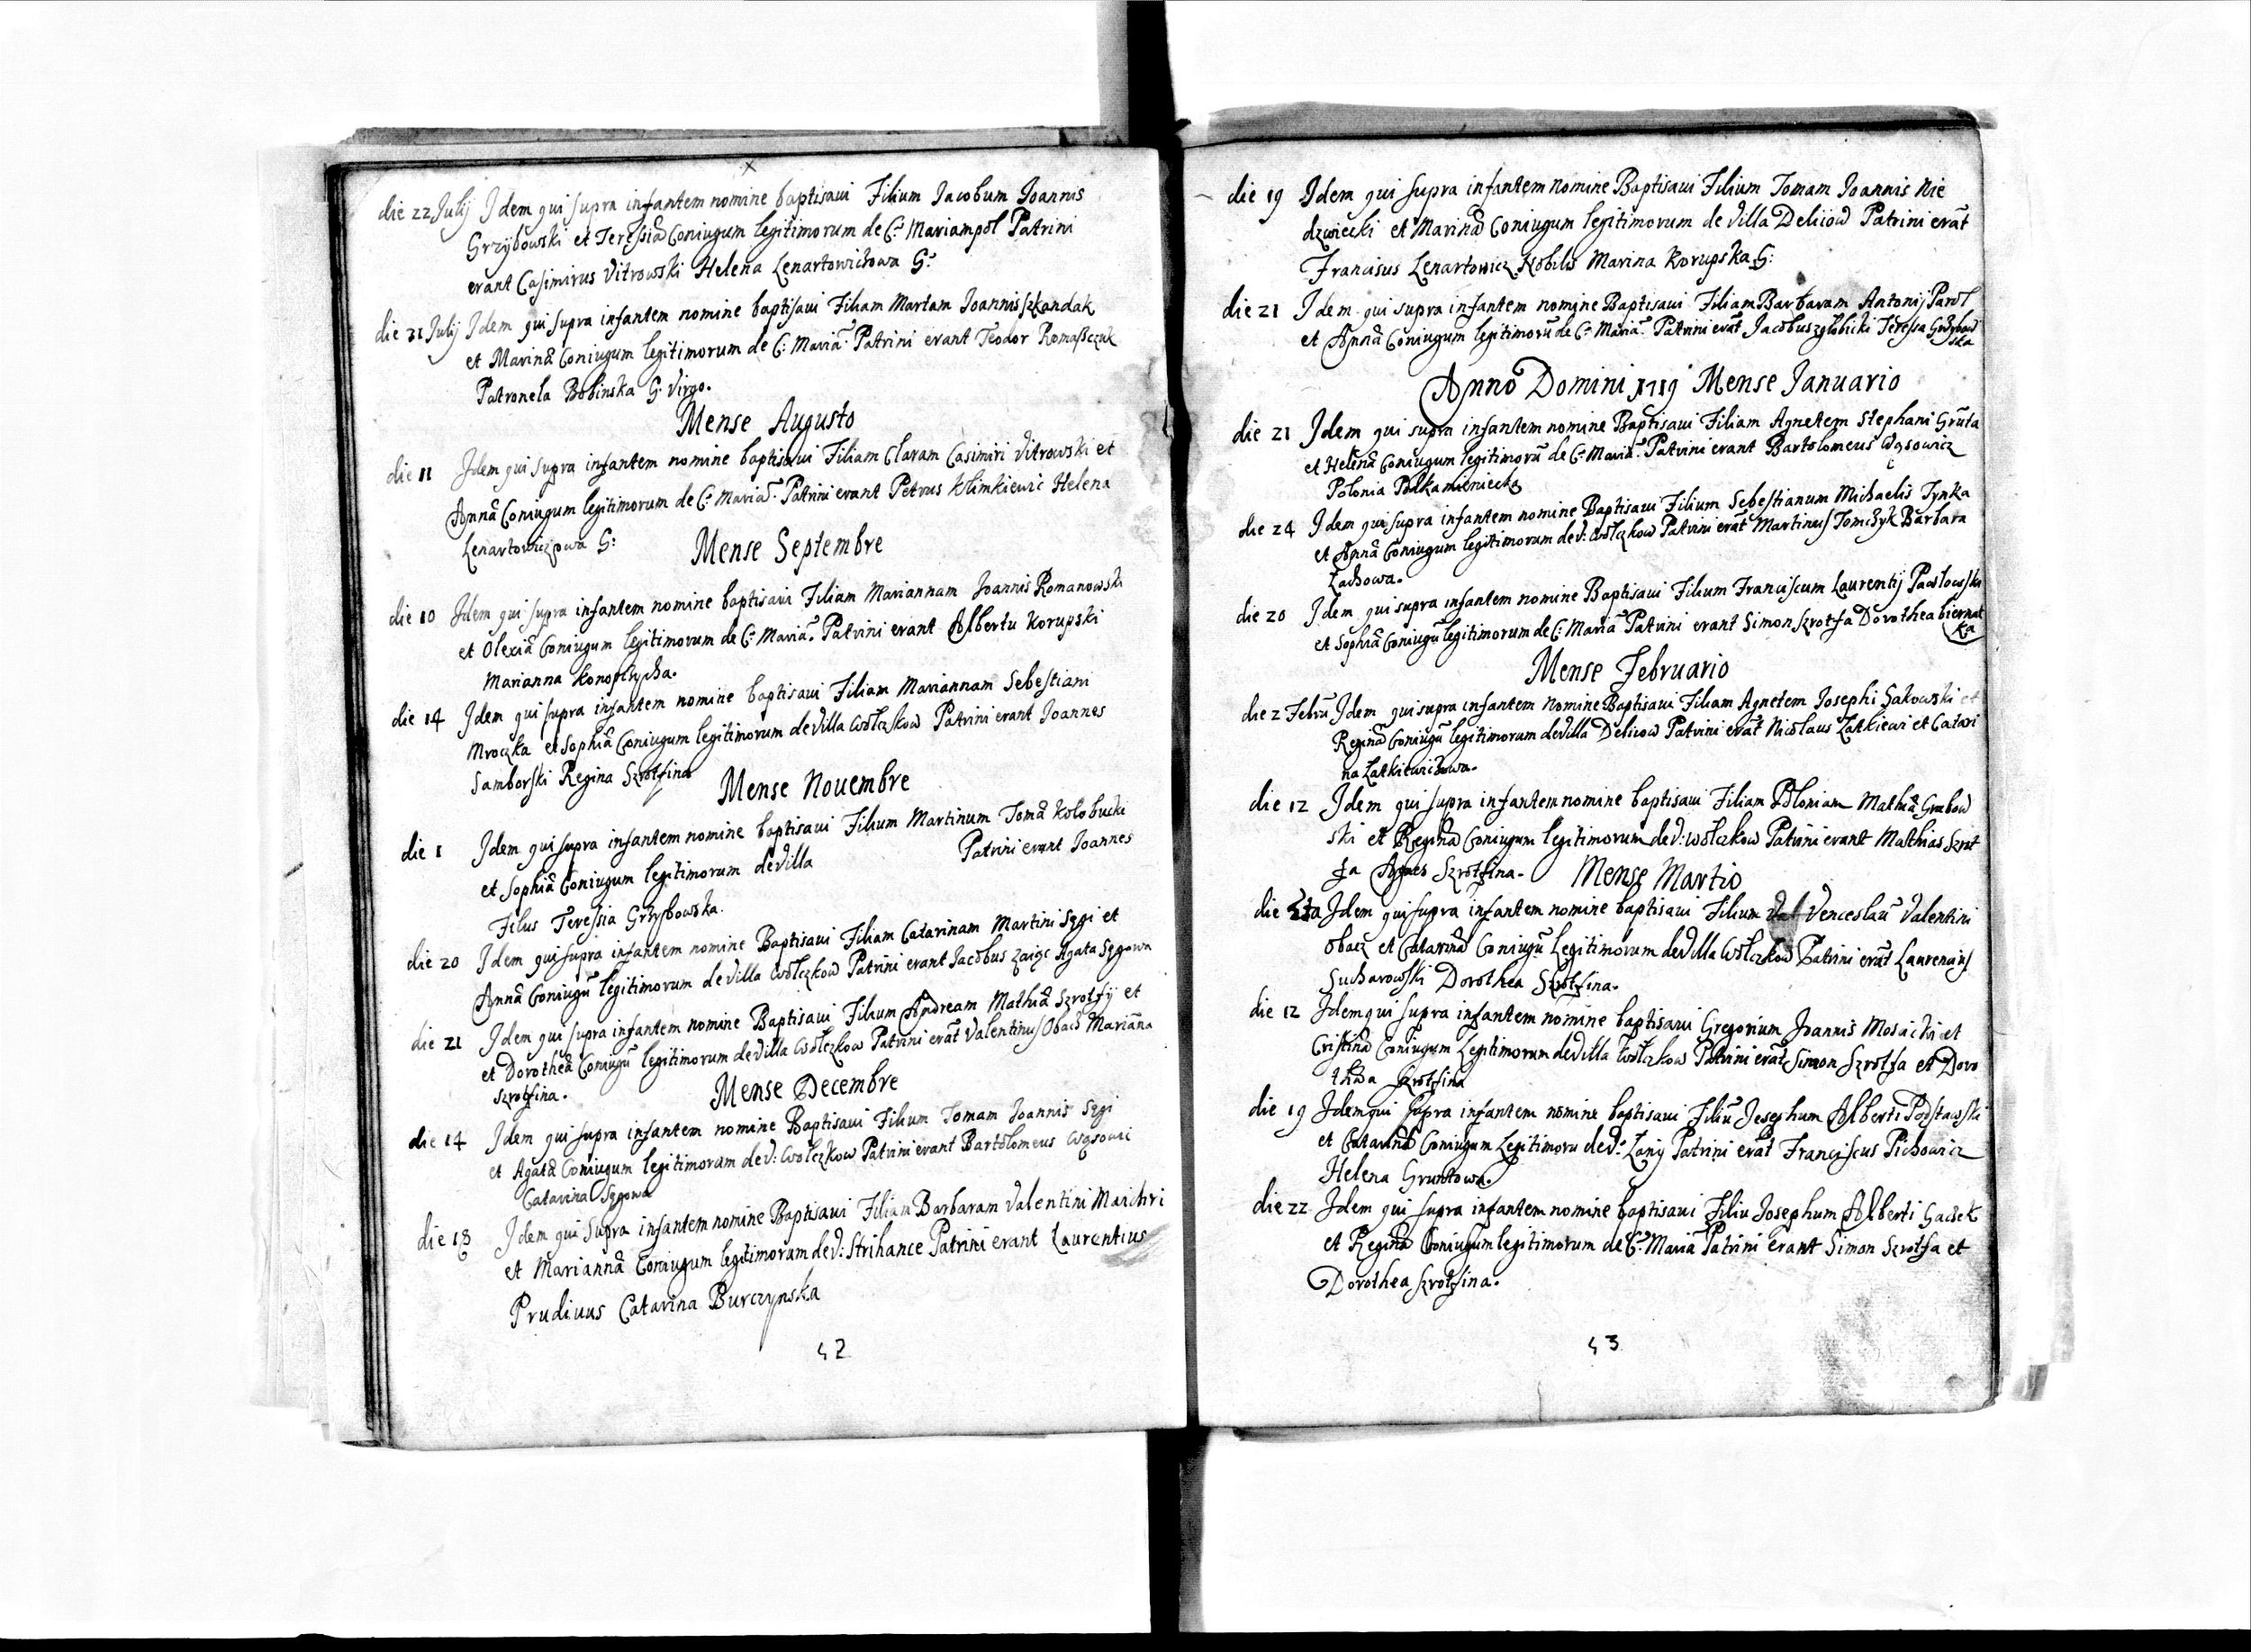 x
die 22 Julij Idem qui supra infantem nomine baptisaui Filium Jacobum Joannis
Grzybowski et Teresiã Coniugum legitimorum de C: Mariampol Patrini
erant Casimirus Vitrowski Helena Lenartowichowa G:
die 31 Julij Idem qui supra infantem nomine baptisaui Filiam Martam Joannis szkandak
et Marinã Coniugum legitimorum de C: Mariã. Patrini erant Teodor Romasczuk
Patronela Bobinska G. Virgo.
Mense Augusto
die 11 Idem qui supra infantem nomine baptisaui Filiam Claram Casimiri Vitrowski et
Annã Coniugum legitimorum de C: Mariã. Patrini erant Petrus Klimkiewic Helena
Lenartowiczowa G:
Mense Septembre
die 10 Idem qui supra infantem nomine baptisaui Filiam Mariannam Joannis Romanowski
et Olexiã Coniugum legitimorum de C: Mariã. Patrini erant Albertu Korupski
Marianna
die 14 Idem qui supra infantem nomine baptisaui Filiam Mariannam Sebestiani
Mroczka et Sophiã Coniugum legitimorum de Villa Wolczkow Patrini erant Joannes
Samborski Regina Szrotfina
Mense Nouembre
die 1 Idem qui supra infantem nomine baptisaui Filium Martinum Tomã Kolobucki
et Sophiã Coniugum legitimorum de Villa Patrini erant Joannes
Filus Teresia Grzybowska.
die 20 Idem qui supra infantem nomine Baptisaui Filiam Catarinam Martini Sęgi et
Annã Coniugũ legitimorum de Villa Wolczkow Patrini erant Jacobus Zaięc Agata Sęgowa
die 21 Idem qui supra infantem nomine Baptisaui Filium Andream Mathiã Szrotfy et
et Dorotheã Coniugũ legitimorum de Villa Wolczkow Patrini erãt Valentinus Obacz Mariãna
Szrotfina.
Mense Decembre
die 14 Idem qui supra infantem nomine Baptisaui Filium Tomam Joannis Sęgi
et Agatã Coniugum legitimorum de V: Wolczkow Patrini erant Bartolomeus Wąsowic
Catarina Sęgowa
die 18 Idem qui Supra infantem nomine Baptisaui Filiam Barbaram Valentini Maichri
et Mariannã Coniugum legitimorum de V: Strihance Patrini erant Laurentius
Prudiuus Catarina Burczynska
42
die 19 Idem qui supra infantem nomine Baptisaui Filium Tomam Joannis Nie
dzwiecki et Marinã Coniugum legitimorum de Villa Deliiow Patrini erãt
Francisus Lenartowicz Nobilis Marina Korupska G:
die 21 Idem qui supra infantem nomine Baptisaui Filiam Barbaram Antonij Parol
et Annã Coniugum legitimorũ de C: Mariã. Patrini erãt Jacobus zglobicki Teressa Grzybow
ska
Anno Domini 1719 Mense Januario
die 21 Idem qui supra infantem nomine Baptisaui Filiam Agnetem Stephani Grũta
et Helenã Coniugum legitimorũ de C: Mariã. Patrini erant Bartolomeus Wąsowicz
Polonia Podkamieniecka
die 24 Idem qui supra infantem nomine Baptisaui Filium Sebestianum Michaelis Tynka
et Annã Coniugum legitimorum de V: Wolczkow Patrini erãt Martinus Tomczyk Barbara
Lachowa.
die 20 Idem qui supra infantem nomine Baptisaui Filium Franciscum Laurentij Pawlowski
et Sophiã Coniugũ legitimorum de C: Mariã Patrini erant Simon Szrotfa Dorothea biernat
ka
Mense Februario
die 2 Febru Idem qui supra infantem nomine Baptisaui Filiam Agnetem Josephi Sakowski et
Reginã Coniugũ legitimorum de Villa Deliiow Patrini erãt Nicolaus Latkiewi et Catari
na Latkiewichowa.
die 12 Idem qui supra infantem nomine baptisaui Filiam Poloniam Mathiã Grabow
ski et Reginã Coniugum legitimorum de V: Wolczkow Patrini erant Mathias Szrot
fa Agnes Szrotfina.
Mense Martio
die Idem qui supra infantem nomine baptisaui Filium Venceslaũ Valentini
Obacz et Catarinã Coniugũ Legitimorum de Villa Wolczkow Patrini erãt Laurencius
Sucharowski Dorothea Szrotfina.
die 12 Idem qui supra infantem nomine baptisaui Gregorium Joannis Mosaicki et
Cristinã Coniugum Legitimorum de Villa Wolczkow Patrini erãt Simon Szrotfa et Doro
thea Szrotfina
die 19 Idem qui supra infantem nomine baptisaui Filiũ Josephum Alberti Podstawski
et Catarinã Coniugum Legitimoru de V: Lany Patrini erãt Franciscus Pichowicz
Helena Gruntowa.
die 22 Idem qui supra infantem nomine baptisaui Filiu Josephum Alberti Gacsek
et Reginã Coniugum legitimorum de C: Mariã Patrini erant Simon Szrotfa et
Dorothea Szrotfina.
43